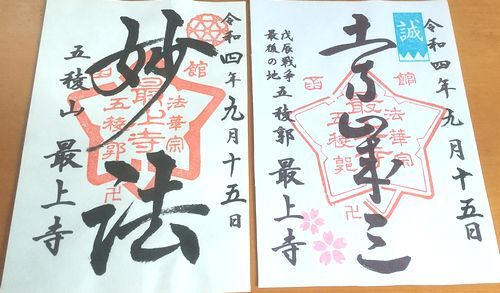 令和四年九月十五日
妙法
五稜山
最上寺
函館
最上寺
法華宗
五稜郭
卍
誠
令和四年九月十五日
土方歳三
戊辰戦争
最後の地
五稜郭
最上寺
函館
最上寺
法華宗
五稜郭
卍